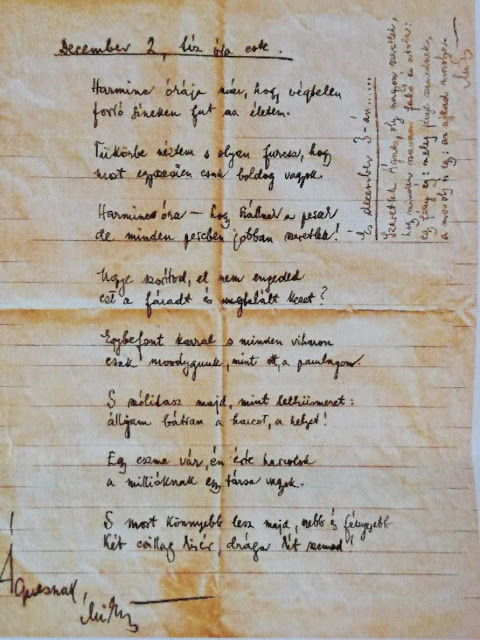 December 2, tíz óra este.
Harminc órája már, hogy végtelen
forró síneken fut az életem.
Tükörbe néztem s olyan furcsa, hogy
most egyszerűen csak boldog vagyok.
Harminc óra — hogy a
de minden percben jobban szeretlek!
Ugye szorítod, el nem engeded
ezt a fáradt és megtalált kezet?
Egybefont karral s minden viharon
csak mosolygunk, mint ott, a pamlagon.
S szólítasz majd, mint lelkiismeret:
álljam bátran a harcot, a helyet!
Egy eszme vár, én érte harcolok
a millióknak egy társa vagyok.
S most könnyebb lesz majd, szebb és fényesebb
két csillag kísér, drága két szemed!
Ágnesnak,
És december 3-án.....
Szeretlek Ágnes, oly nagyon szeretlek,
hogy minden szavam fakó és ostoba:
egy fény ég: mély szemednek,
a mosoly is ég: az ajkad mosolya.